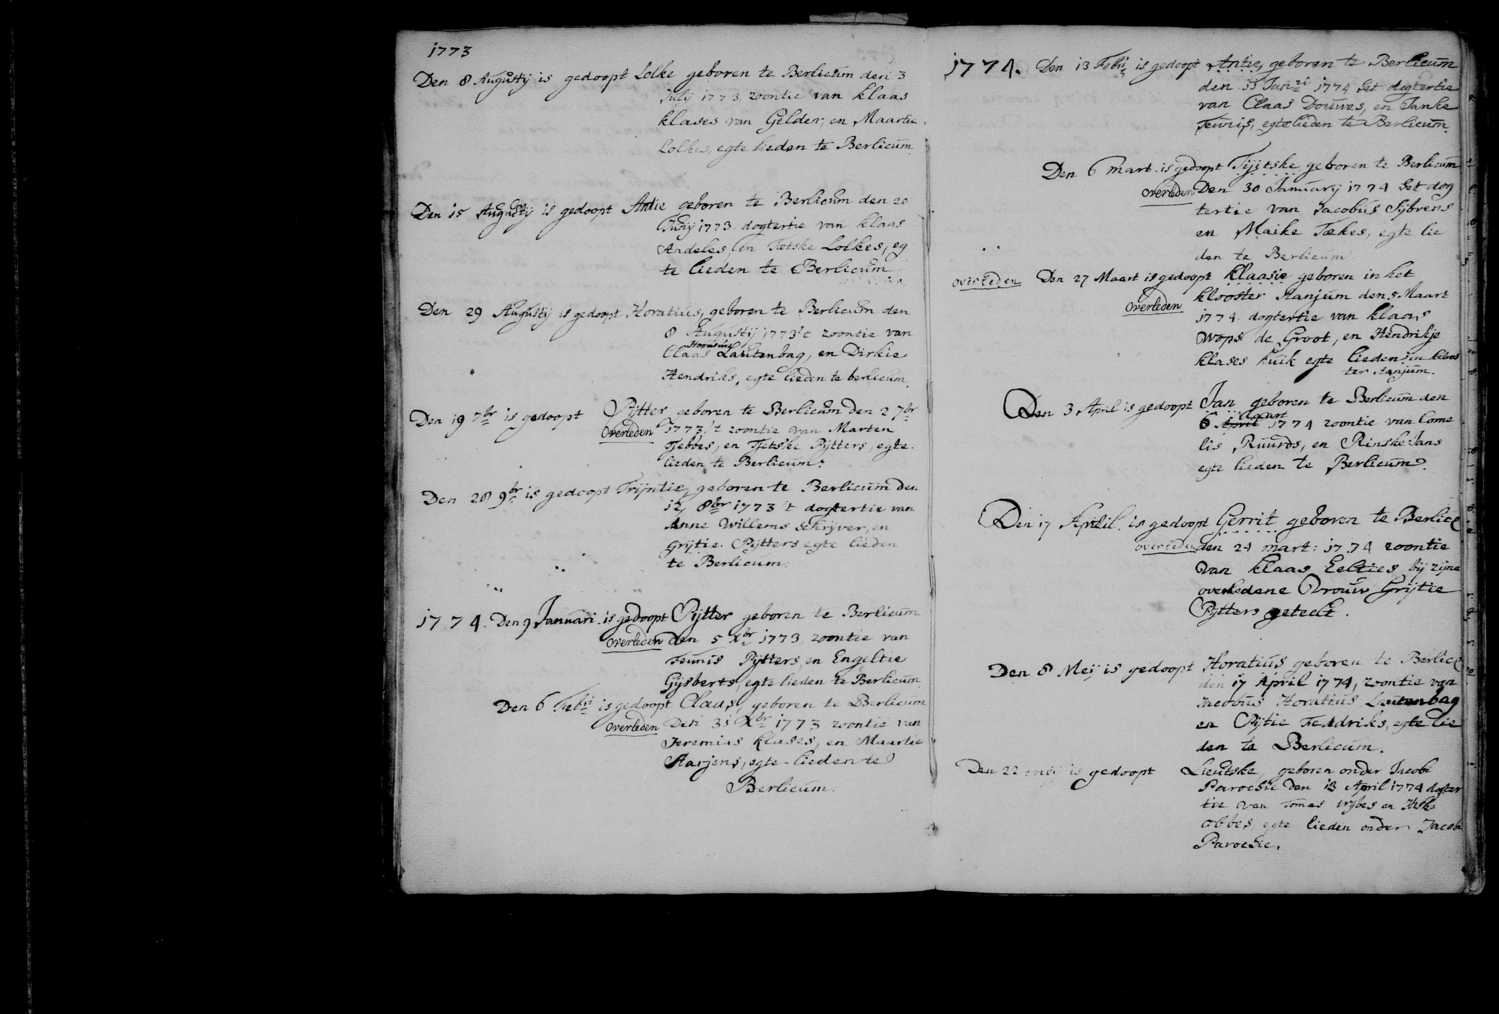 1773
Den 8 Augustij is gedoopt Lolke geboren te Berlicum den 3
Julij 1773, zoontie van Klaas
Klases van Gelder, en Maartie
Lolkes, egte lieden te Berlicum.
Den 15 Augustij is gedoopt Antie geboren te Berlicum den 20
Julij 1773 dogtertie van Klaas
Andeles, en Tætske Lolkes, eg
te lieden te Berlicum
Den 29 Augustij is gedoopt Horatius, geboren te Berlicum den
8 Augustij 1773 't zoontie van
Claas Horatius Lautenbag, en Dirkie
Hendriks, egte lieden te berlicum.
Den 19 7br is gedoopt Pijtter geboren te Berlicum den 2 7br
overleden 1773 't zoontie van Marten
Tjebbes, en Tietske Pijtters, egte
lieden te Berlicum.
Den 28 9br is gedoopt Trijntie, geboren te Berlicum den
12 8br 1773 't dogtertie van
Anne Willems Schrijver, en
Grijtie Pijtters egte lieden
te Berlicum.
1774. Den 9 Januari. is gedoopt Pijtter geboren te Berlicum
overleden den 5 Xbr 1773, zoontie van
Teunis Pijtters, en Engeltie
Gijsberts, egte lieden te Berlicum
Den 6 Febr is gedoopt Claas, geboren te Berlicum
overleden Den 31 Xbr 1773 zoontie van
Jeremias Klases, en Maartie
Harjens, egte lieden te
Berlicum.
1774. Den 13 Febr is gedoopt Antie, geboren te Berlicum
den Jan 1774 het dogtertie
van Claas Douwes, en Janke
Teunis, egtelieden te Berlicum.
Den 6 Mart. is gedoopt Tijtske geboren te Berlicum
overleden Den 30 Januarij 1774 het dog
tertie van Jacobus Sijbrens
en Maike Tækes, egte lie
den te Berlicum
overleden Den 27 Maart is gedoopt Klaasie geboren in het
overleden klooster Aanjum den 5 Maart
1774. dogtertie van Klaas
Wops de Groot, en Hendrikje
Klases Kuik egte lieden in kloos
ter Aanjum.
Den 3 April is gedoopt Jan geboren te Berlicum den
6 April Maart 1774 zoontie van Corne
lis Ruurds, en Rinske Jans
egte lieden te Berlicum.
Den 17 April. is gedoopt Gerrit geboren te Berlic
overleden den 24 mart: 1774 zoontie
van Klaas Eelties bij zijne
overledene Vrouw Grijtie
Pijtters geteelt.
Den 8 Meij is gedoopt Horatius geboren te Berlic
den 17 April 1774, zoontie van
Jacobus Horatius Lautenbag
en Pijtie Hendriks, egte lie
den te Berlicum.
Den 22 meij is gedoopt Lieutske geboren onder Jacobi
Parochie den 13 April 1774 dogter
tie van Tomas Wijbes en
Obbes, egte lieden onder Jacob
Parochie.